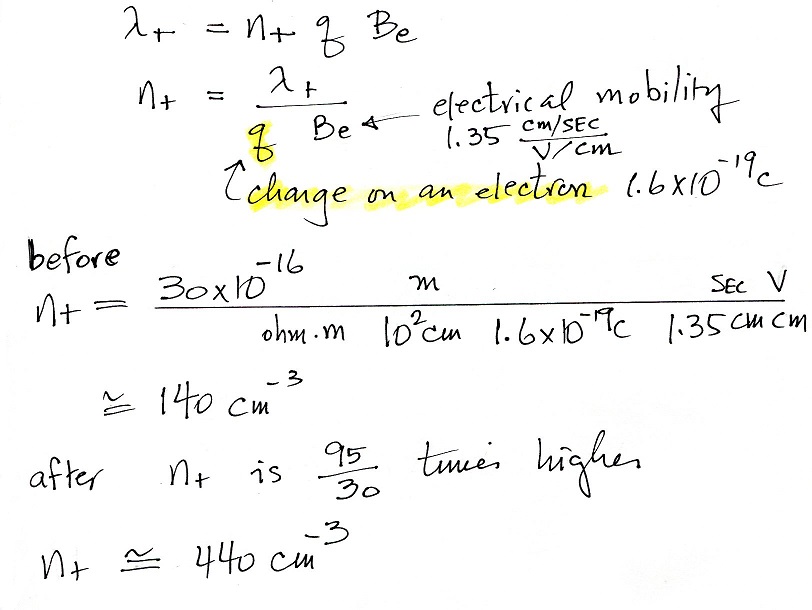 λ+ = n+ q Be
n+ = λ+ / q Be ← electrical mobility
1.35 cm/SEC / V/cm
↑ charge on an electron 1.6x10^-19 C
before
n+ = 30x10^-16 m SEC V / ohm.m 10^2 cm 1.6x10^-19 C 1.35 cm cm
≅ 140 cm^-3
after n+ is 95/30 times higher
n+ ≅ 440 cm^-3